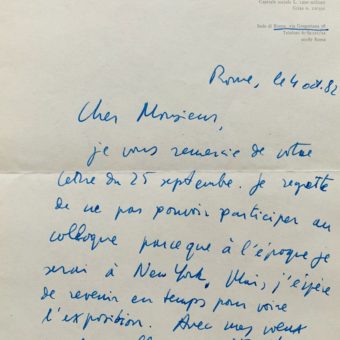 Capitale sociale L.
Sede di Roma, via Gregoriana
Telefono
00187 Roma
Rome, le 4 oct. 82
Cher Monsieur,
je vous remercie de votre
lettre du 25 septembre. Je regrette
de ne pas pouvoir participer au
colloque parce que à l'époque je
serai à New York. Mais j'éspère
de revenir en temps pour voire
l'exposition. Avec mes voeux